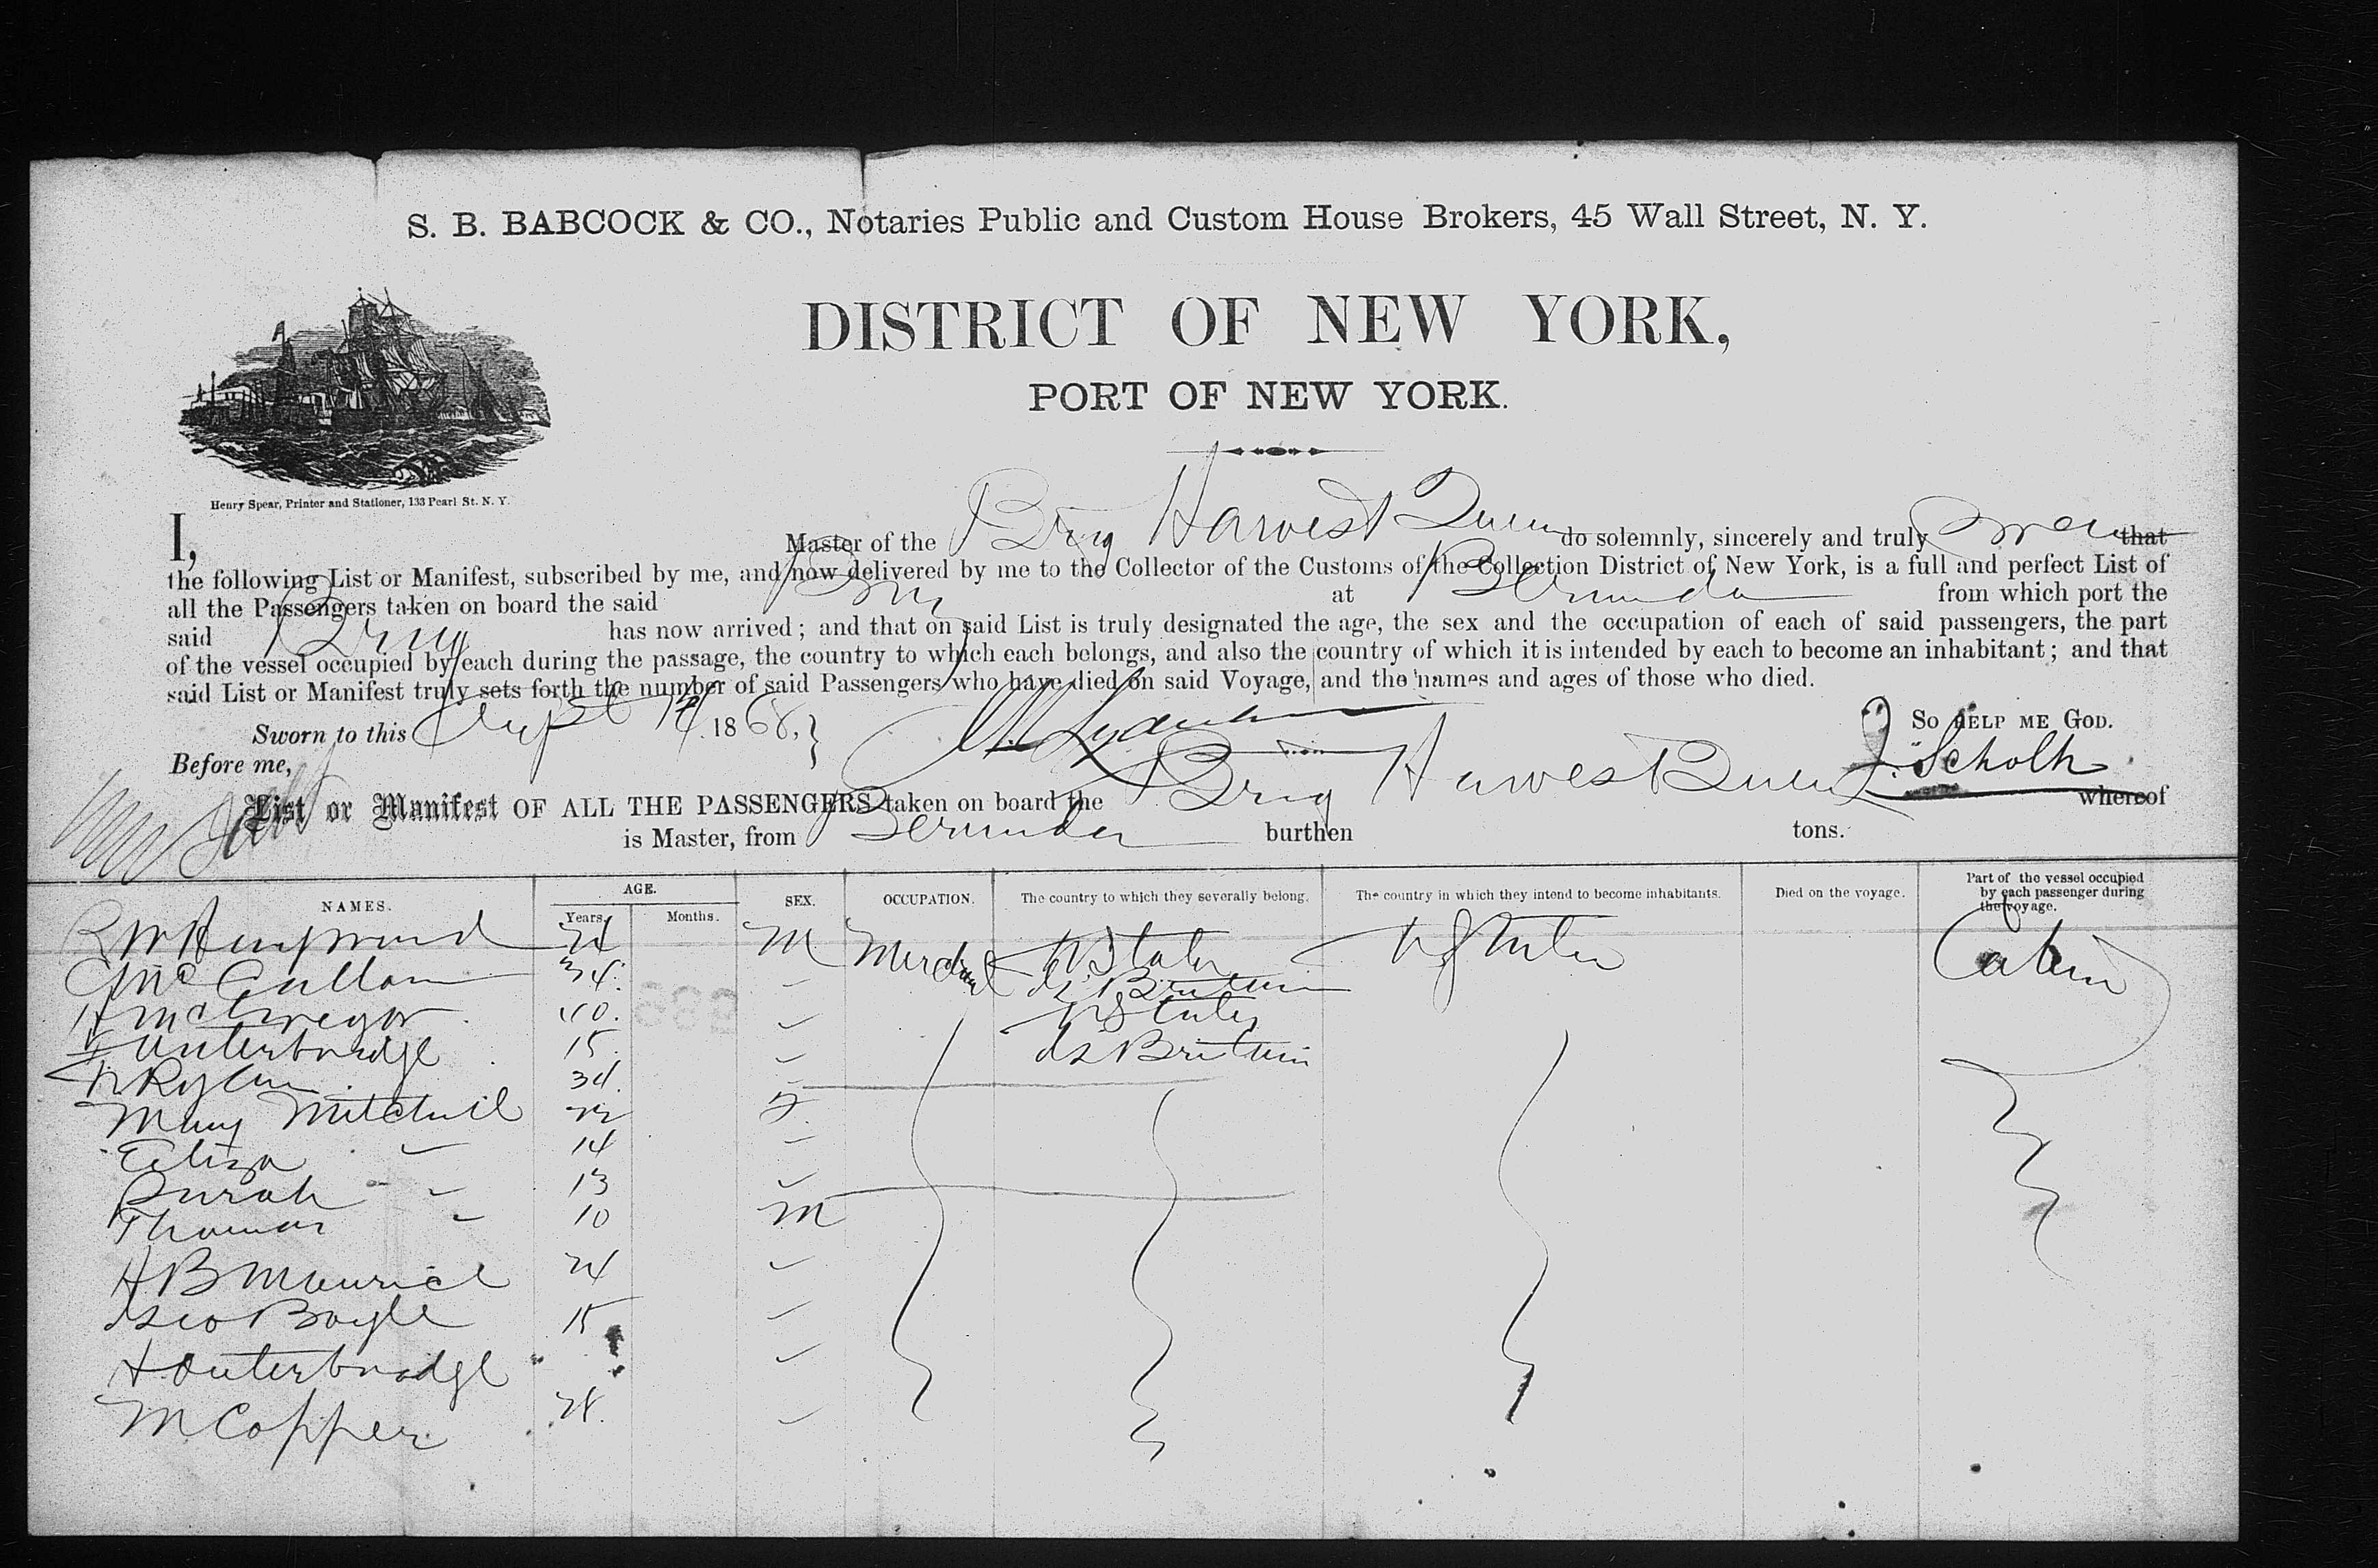 S. B. BABCOCK & CO., Notaries Public and Custom House Brokers, 45 Wall Street, N. Y.
DISTRICT OF NEW YORK,
PORT OF NEW YORK.
Henry Spear, Printer and Stationer, 133 Pearl St. N. Y.
I, Master of the Brig Harvest Queen do solemnly, sincerely and truly swear that
the following List or Manifest, subscribed by me, and now delivered by me to the Collector of the Customs of the Collection District of New York, is a full and perfect List of
all the Passengers taken on board the said Brig at Bermuda from which port the
said Brig has now arrived; and that on said List is truly designated the age, the sex and the occupation of each of said passengers, the part
of the vessel occupied by each during the passage, the country to which each belongs, and also the country of which it is intended by each to become an inhabitant; and that
said List or Manifest truly sets forth the number of said Passengers who have died on said Voyage, and the names and ages of those who died.
Sworn to this 1868, So HELP ME GOD.
Before me, Scholk
List or Manifest OF ALL THE PASSENGERS taken on board the Brig Harvest Queen whereof
is Master, from Bermuda burthen tons.
NAMES. AGE. Years. Months. SEX. OCCUPATION. The country to which they severally belong. The country in which they intend to become inhabitants. Died on the voyage. Part of the vessel occupied by each passenger during the voyage.
R W M U States U States Cabin
McCallan 34. " Gt Britain
H McGregor 40. " U States
Outerbridge 15 " Gt Britain
34. "
Mary Mitchell F.
Eliza " 14 "
Sarah " 13 "
Thomas " 10 M
H B Maurice 24 "
Geo Boyle 15 "
Outerbridge "
M Copper "